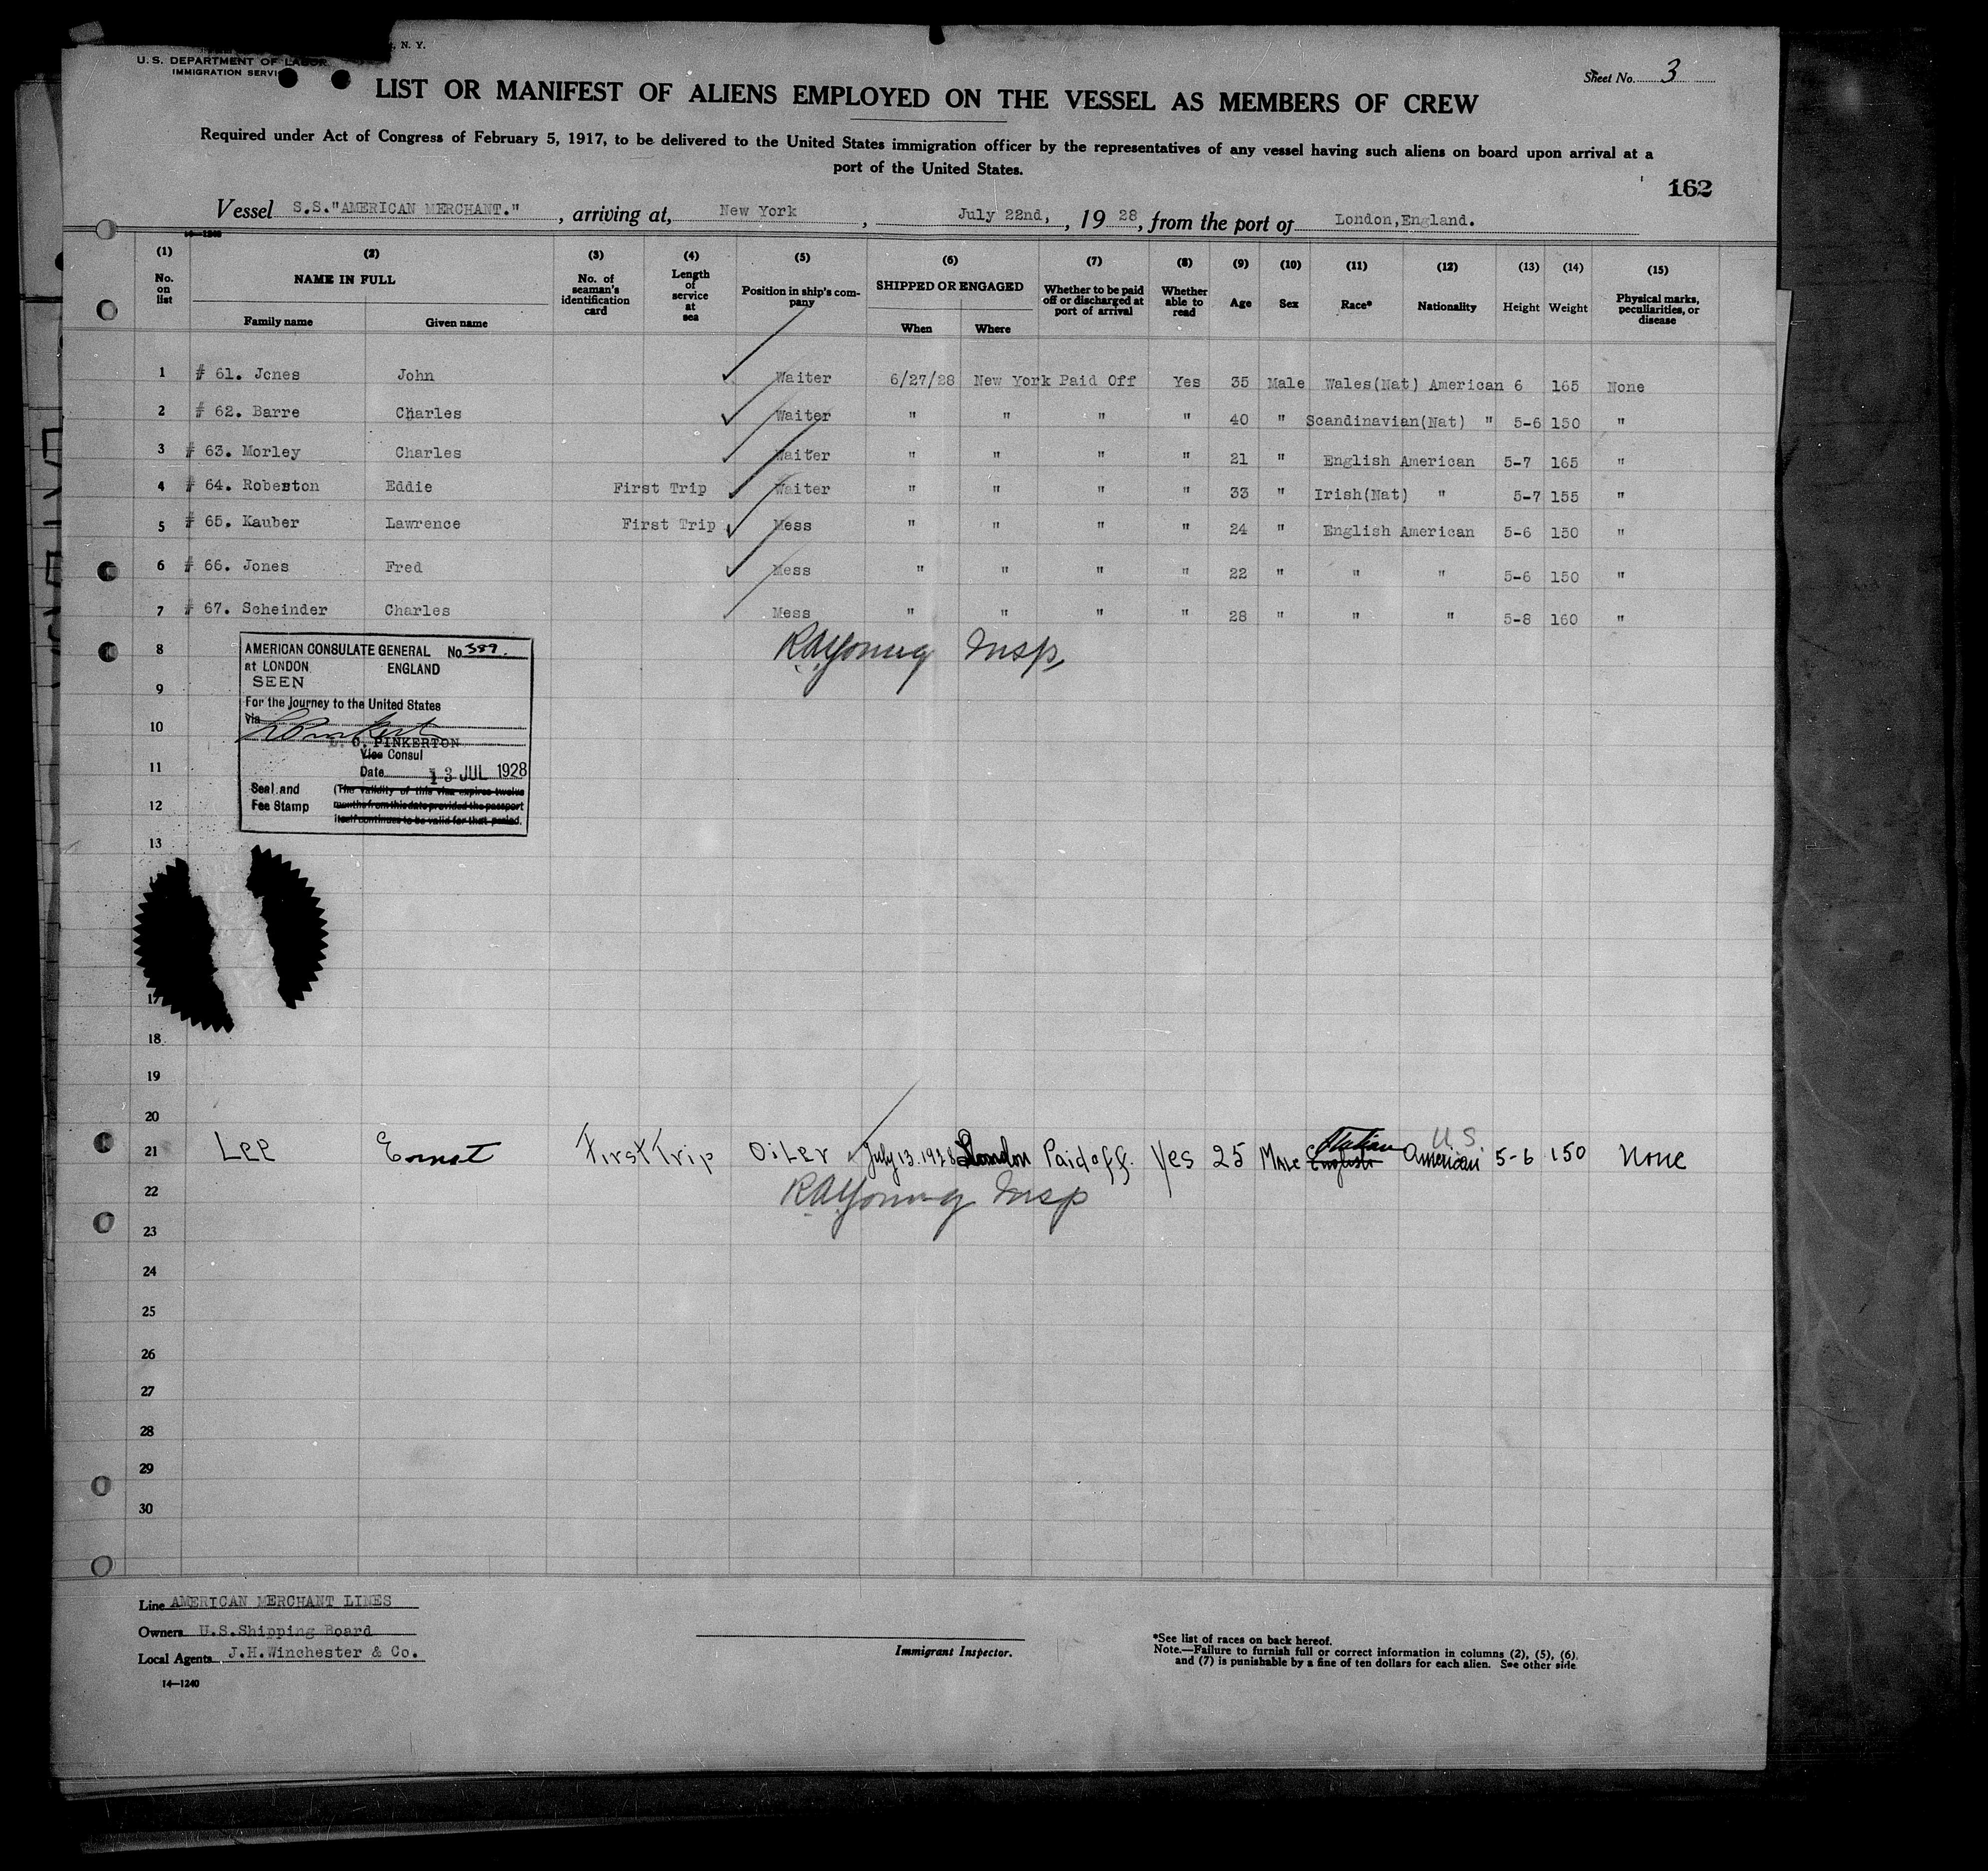 , N. Y.
U. S. DEPARTMENT OF LABOR
IMMIGRATION SERVI
Sheet No. 3
LIST OR MANIFEST OF ALIENS EMPLOYED ON THE VESSEL AS MEMBERS OF CREW
Required under Act of Congress of February 5, 1917, to be delivered to the United States immigration officer by the representatives of any vessel having such aliens on board upon arrival at a
port of the United States.
162
Vessel S.S."AMERICAN MERCHANT." , arriving at, New York , July 22nd, , 19 28 , from the port of London,England.
14—1240
(1) (2) (3) (4) (5) (6) (7) (8) (9) (10) (11) (12) (13) (14) (15)
No. on list NAME IN FULL Family name Given name No. of seaman's identification card Length of service at sea Position in ship's com- pany SHIPPED OR ENGAGED When Where Whether to be paid off or discharged at port of arrival Whether able to read Age Sex Race* Nationality Height Weight Physical marks, peculiarities, or disease
1 # 61. Jones John Waiter 6/27/28 New York Paid Off Yes 35 Male Wales(Nat) American 6 165 None
2 # 62. Barre Charles Waiter " " " " 40 " Scandinavian(Nat) " 5-6 150 "
3 # 63. Morley Charles Waiter " " " " 21 " English American 5-7 165 "
4 # 64. Robeston Eddie First Trip Waiter " " " " 33 " Irish(Nat) " 5-7 155 "
5 # 65. Kauber Lawrence First Trip Mess " " " " 24 " English American 5-6 150 "
6 # 66. Jones Fred Mess " " " " 22 " " " 5-6 150 "
7 # 67. Scheinder Charles Mess " " " " 28 " " " 5-8 160 "
RAYoung Insp,
8
9
10
11
12
13
AMERICAN CONSULATE GENERAL No. 389.
at LONDON ENGLAND
SEEN
For the Journey to the United States
Via
L. O. PINKERTON
Vice Consul
Date 13 JUL 1928
Seal and (The validity of this visa expires twelve
Fee Stamp months from this date provided the passport
itself continues to be valid for that period.
17
18
19
20
21 Lee Ernest First Trip Oiler July 13.1928 London Paid off. Yes 25 Male English Italian American U.S. 5-6 150 None
22 RAYoung Insp
23
24
25
26
27
28
29
30
Line AMERICAN MERCHANT LINES
Owners U.S.Shipping Board
Local Agents J.H.Winchester & Co.
14—1240
Immigrant Inspector.
*See list of races on back hereof.
Note.—Failure to furnish full or correct information in columns (2), (5), (6),
and (7) is punishable by a fine of ten dollars for each alien. See other side